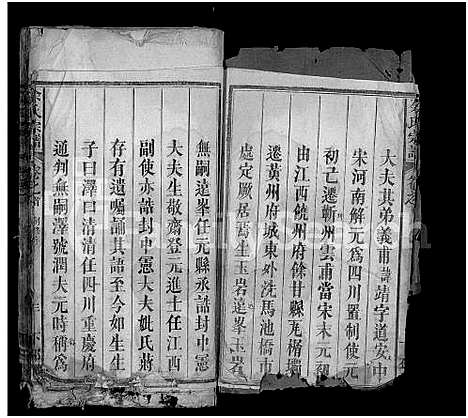 大夫其弟義甫諱靖字道安中
宋河南解元為四川置制使元
初亡遷蘄州雲甫當宋末元初
由江西饒州府餘甘縣瓦楷壩
遷黃州府城東外洗馬池橋市
處定厥居焉生玉岩遠峯玉岩
無嗣遠峯任元縣丞誥封中憲
大夫生敬齋登元進士任江西
副使亦誥封中憲大夫妣氏蔣
存有遺囑誦其語至今如生生
子曰澤曰清清任四川重慶府
通判無嗣澤號潤夫元時稱為
余氏宗譜